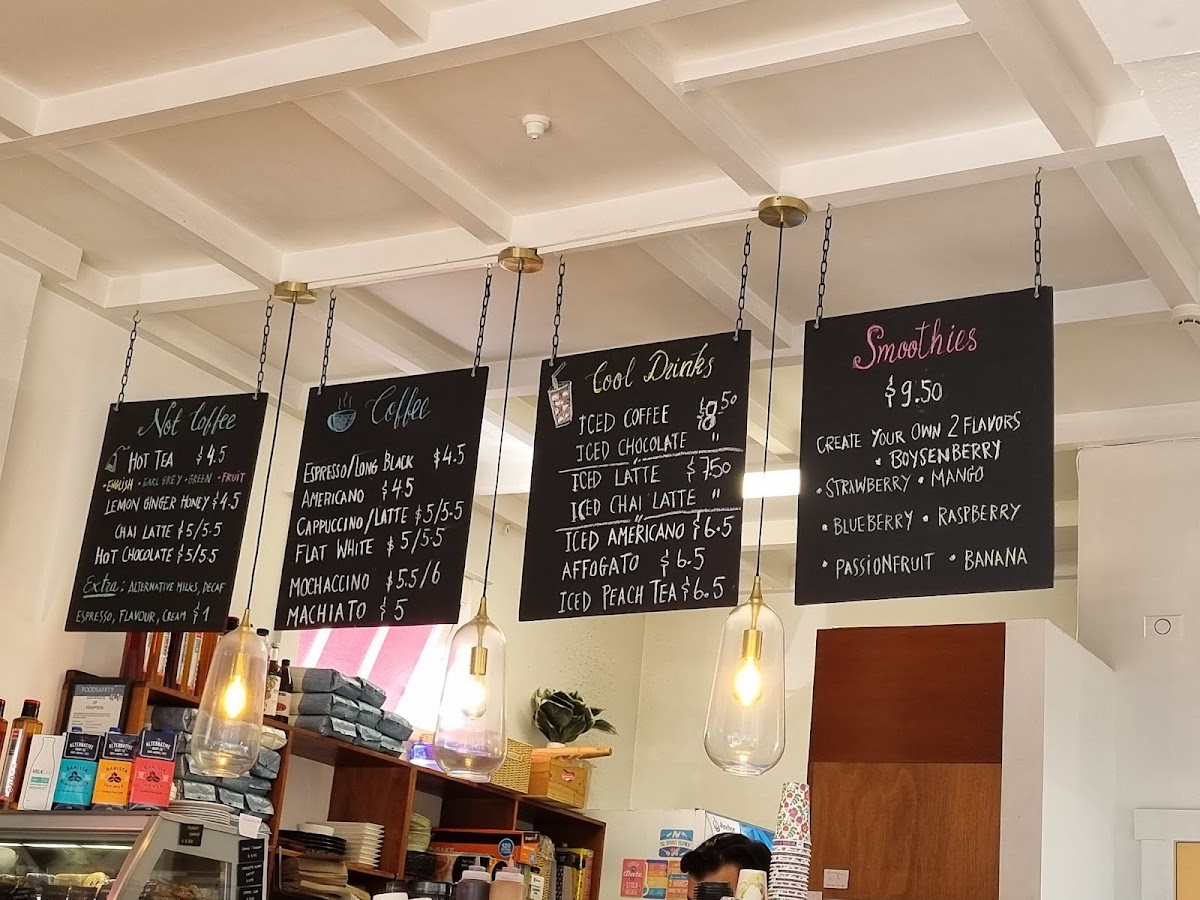 Not Coffee
Hot Tea $4.5
• English • Earl Grey • Green • Fruit
Lemon Ginger Honey $4.5
Chai Latte $5/5.5
Hot Chocolate $5/5.5
Extra: Alternative Milks, Decaf
Espresso, Flavour, Cream $1
Coffee
Espresso/Long Black $4.5
Americano $4.5
Cappuccino/Latte $5/5.5
Flat White $5/5.5
Mochaccino $5.5/6
Machiato $5
Cool Drinks
Iced Coffee $8.50
Iced Chocolate "
Iced Latte $7.50
Iced Chai Latte "
Iced Americano $6.5
Affogato $6.5
Iced Peach Tea $6.5
Smoothies
$9.50
Create Your Own 2 Flavors
• Boysenberry
• Strawberry • Mango
• Blueberry • Raspberry
• Passionfruit • Banana
FOODSAFETY
MILK
ALTERNATIVE
BARISTA
ALTERNATIVE
BARISTA
ALTERNATIVE
BARISTA
Anchor
Date